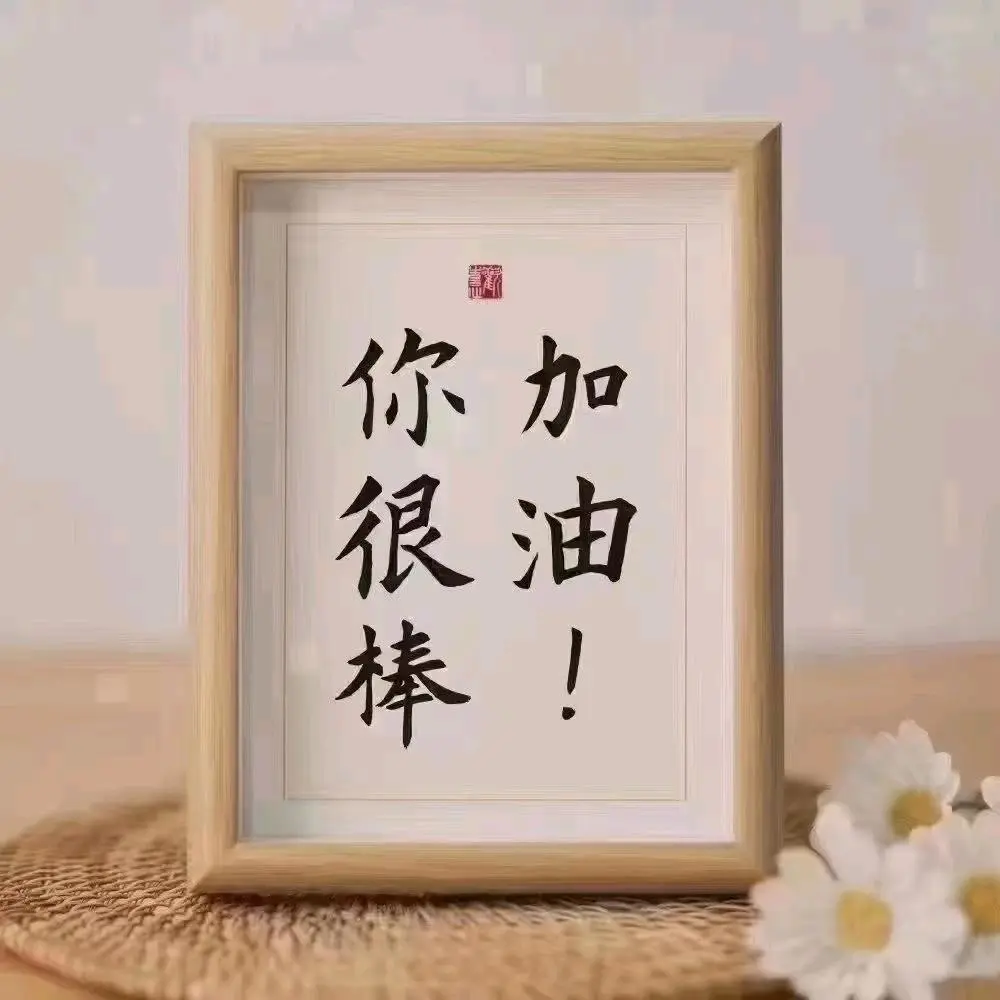 加油！
你很棒